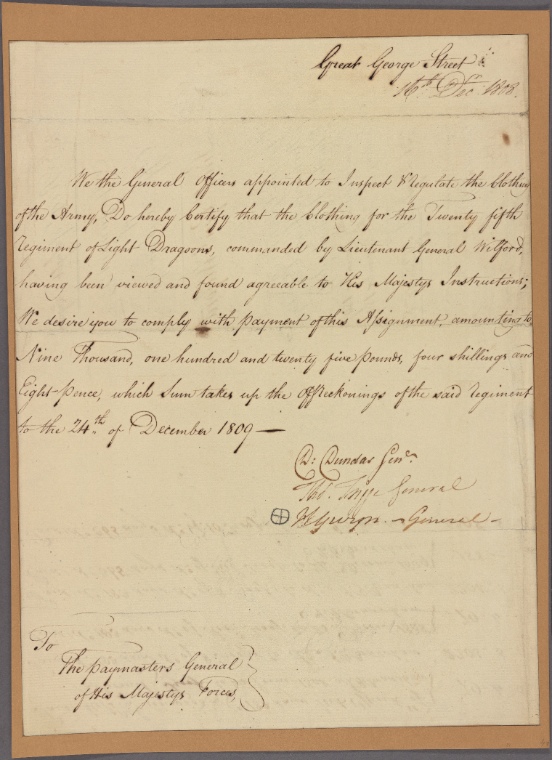 Great George Street
16th Decr. 1808.
We the General Officers appointed to Inspect & Regulate the Clothing
of the Army, Do hereby Certify that the Clothing for the Twenty fifth
Regiment of Light Dragoons, commanded by Lieutenant General Wilford,
having been viewed and found agreeable to His Majestys Instructions;
We desire you to comply with payment of this Assignment, amounting to
Nine Thousand, one hundred and twenty five pounds, four shillings and
Eight-pence, which Sum takes up the Offreckonings of the said Regiment
to the 24th of December 1809 —
D: Dundas Genl.
General
General
To
The paymasters General
of His Majestys Forces,